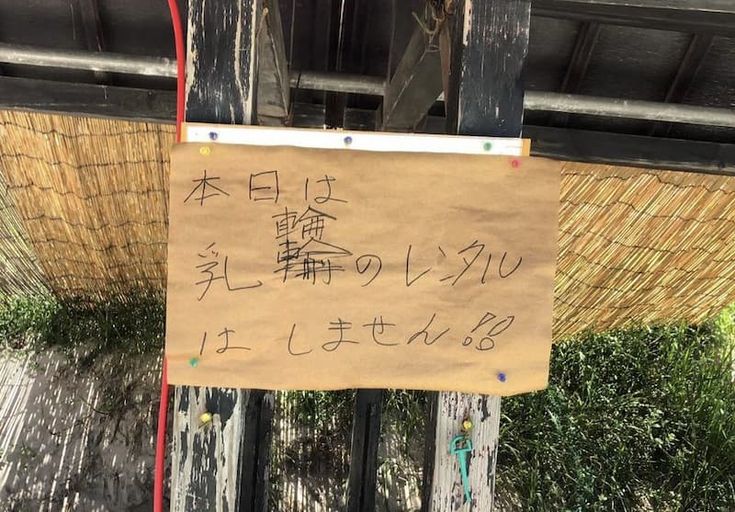 本日は
乳輪のレンタル
はしません!!